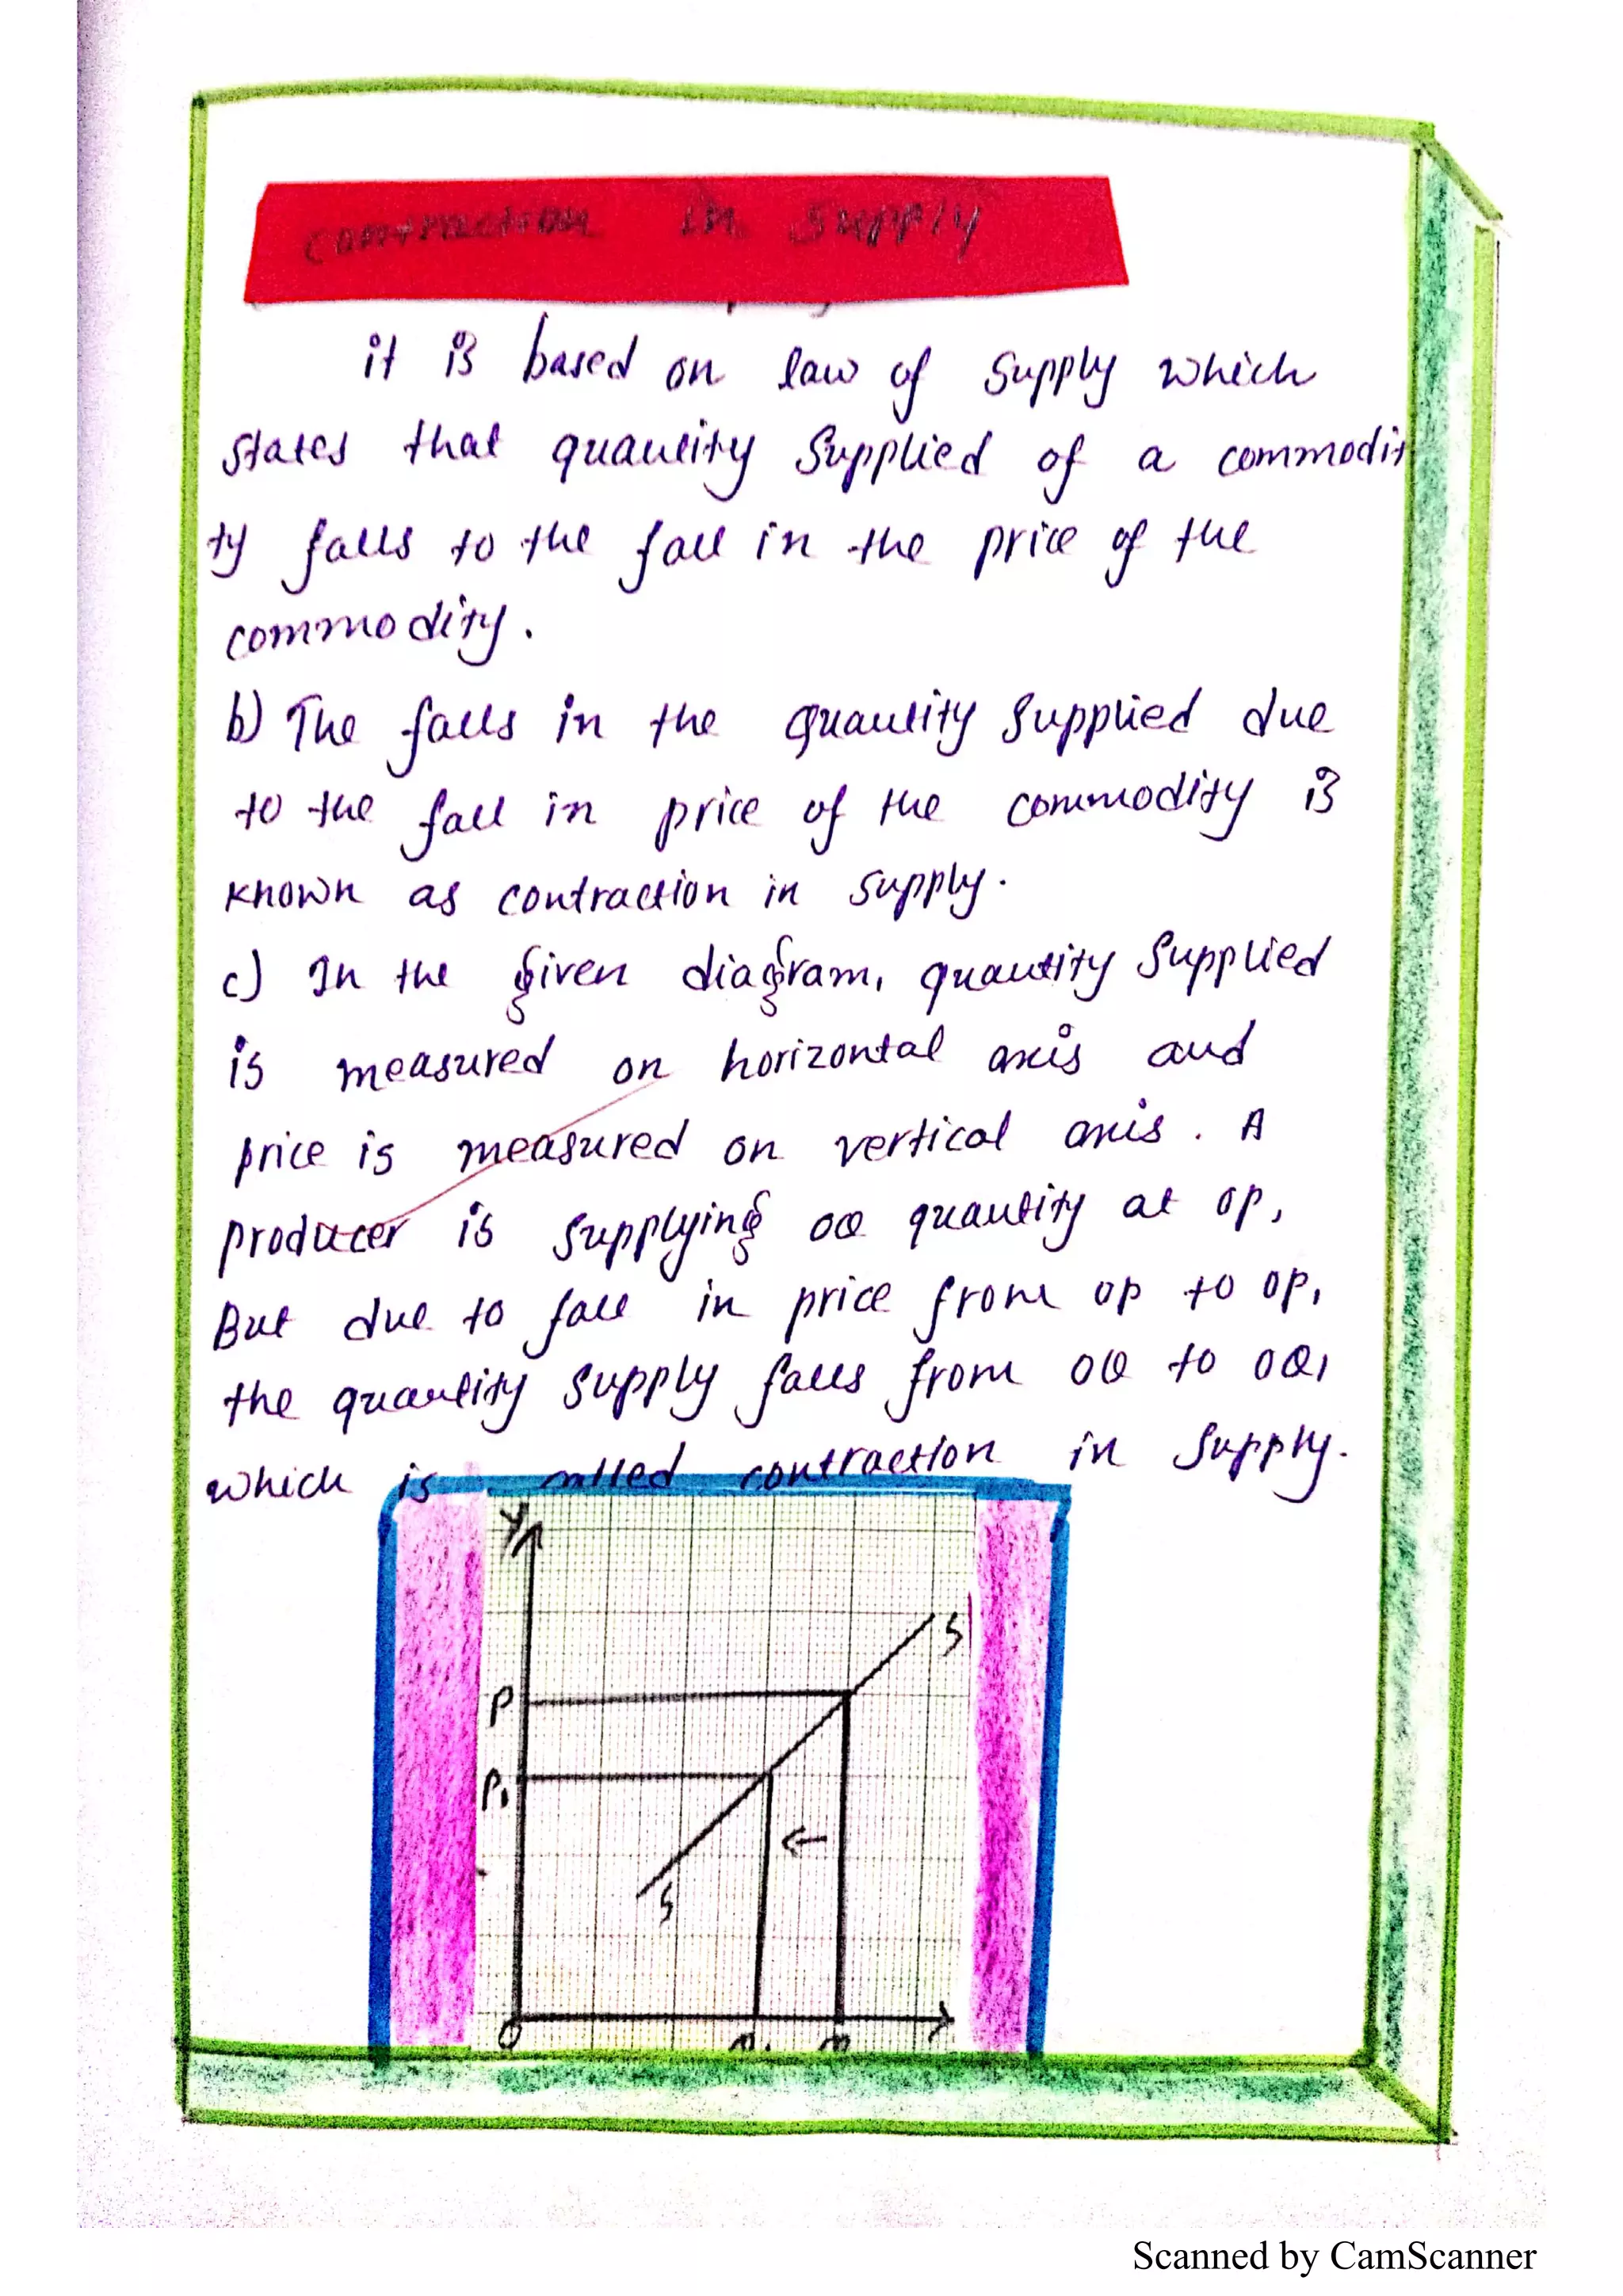 contraction in supply
it is based on law of supply which
states that quantity supplied of a commodit
ty falls to the fall in the price of the
commodity.
b) The falls in the quantity supplied due
to the fall in price of the commodity is
known as contraction in supply.
c) In the given diagram, quantity supplied
is measured on horizontal axis and
price is measured on vertical axis. A
producer is supplying OQ quantity at OP,
But due to fall in price from OP to OP1
the quantity supply falls from OQ to OQ1
which is called contraction in supply.
Y
S
P
P1
S
O
Scanned by CamScanner